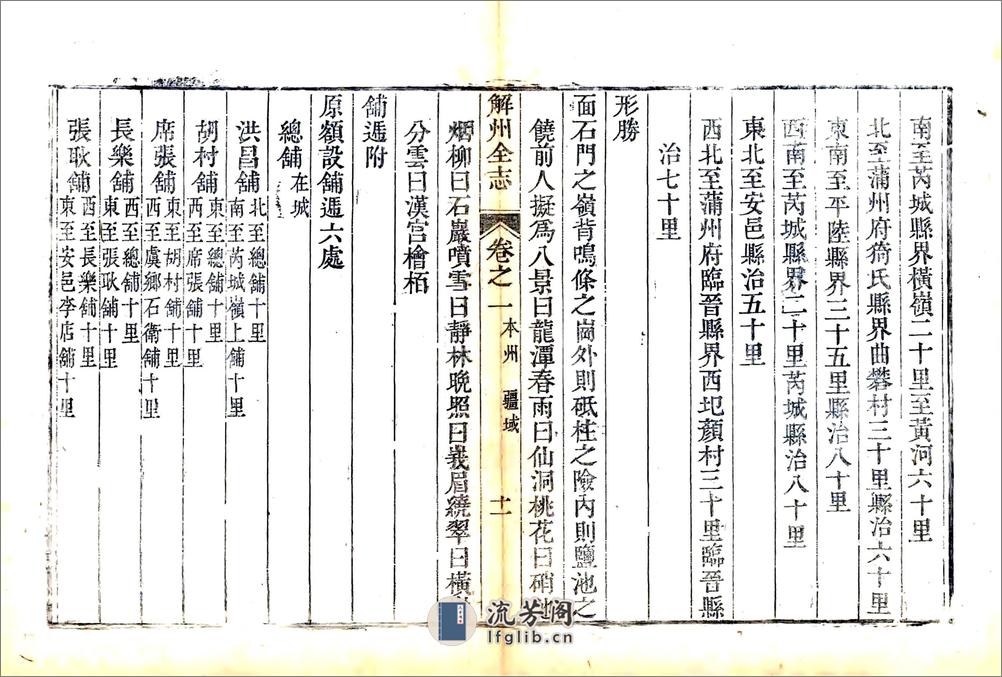 南至芮城縣界橫嶺二十里至黃河六十里
北至蒲州府猗氏縣界曲礬村三十里縣治六十里
東南至平陸縣界三十五里縣治八十里
西南至芮城縣界二十里芮城縣治八十里
東北至安邑縣治五十里
西北至蒲州府臨晉縣界西圯顏村三十里臨晉縣
治七十里
形勝
面石門之嶺背鳴條之崗外則砥柱之險內則鹽池之
饒前人擬爲八景曰龍潭春雨曰仙洞桃花曰硝池
解州全志 卷之一 本州 疆域 十一
烟柳曰石巖噴雪曰靜林晚照曰峩眉繞翠曰橫嶺
分雲曰漢宮檜栢
舖遞附
原額設舖遞六處
總舖 在城
洪昌舖 北至總舖十里 南至芮城嶺上舖十里
胡村舖 東至總舖十里 西至席張舖十里
席張舖 東至胡村舖十里 西至虞鄉石衛舖十里
長樂舖 西至總舖十里 東至張耿舖十里
張耿舖 西至長樂舖十里 東至安邑李店舖十里
流芳阁
lfglib.cn